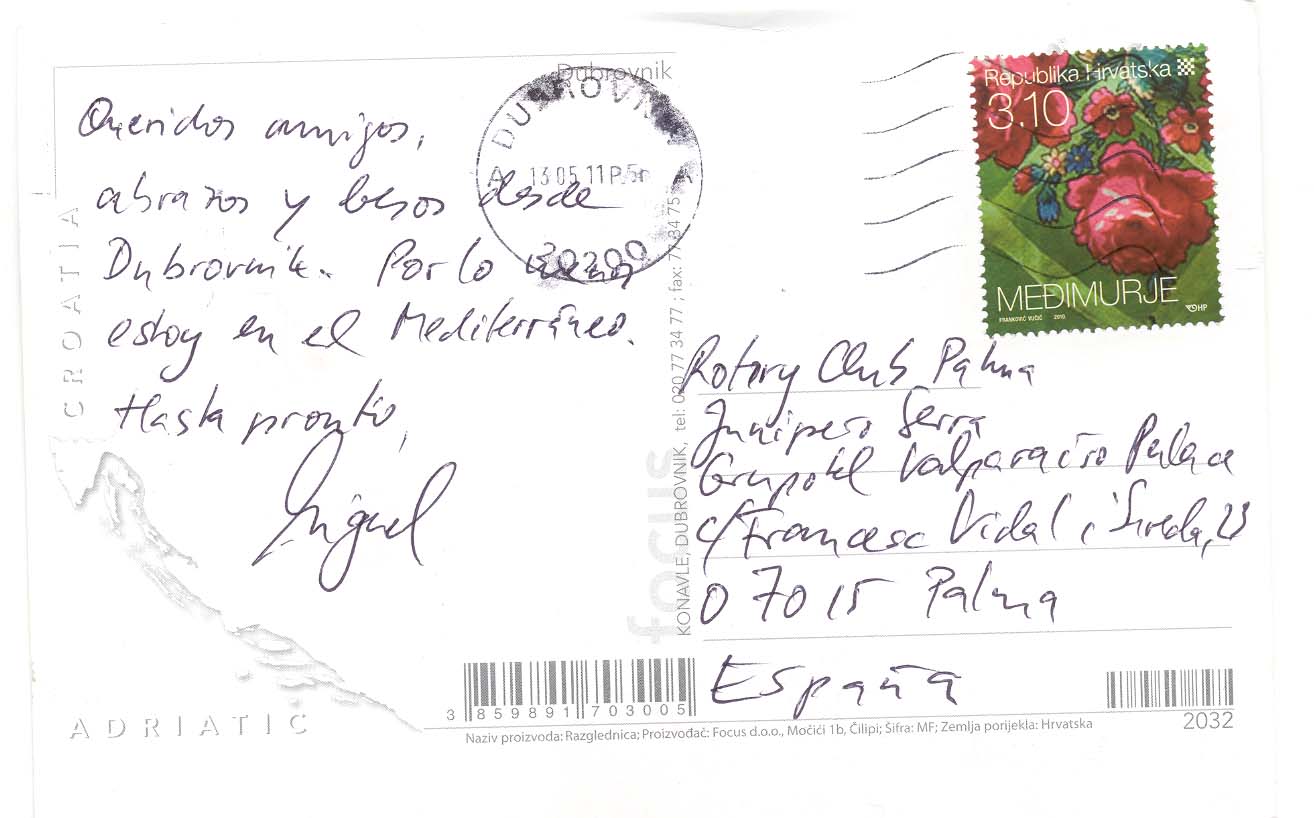 Dubrovnik
Queridos amigos,
abrazos y besos desde
Dubrovnik. Por lo menos
estoy en el Mediterráneo.
Hasta pronto,
Miguel
CROATIA
ADRIATIC
DUBROVNIK
A 13 05 11 A
20200
focus
KONAVLE, DUBROVNIK, tel: 020 77 34 77 ; fax: 77 34 75
Republika Hrvatska
3.10
MEĐIMURJE
FRANKOVIĆ VUČIĆ 2010
HP
Rotory Club Palma
Junipero Serra
Grupotel Valparaiso Palace
c/ Francesc Vidal i Sureda, 23
07015 Palma
España
3 859891 703005
2032
Naziv proizvoda: Razglednica; Proizvođač: Focus d.o.o., Močići 1b, Čilipi; Šifra: MF; Zemlja porijekla: Hrvatska